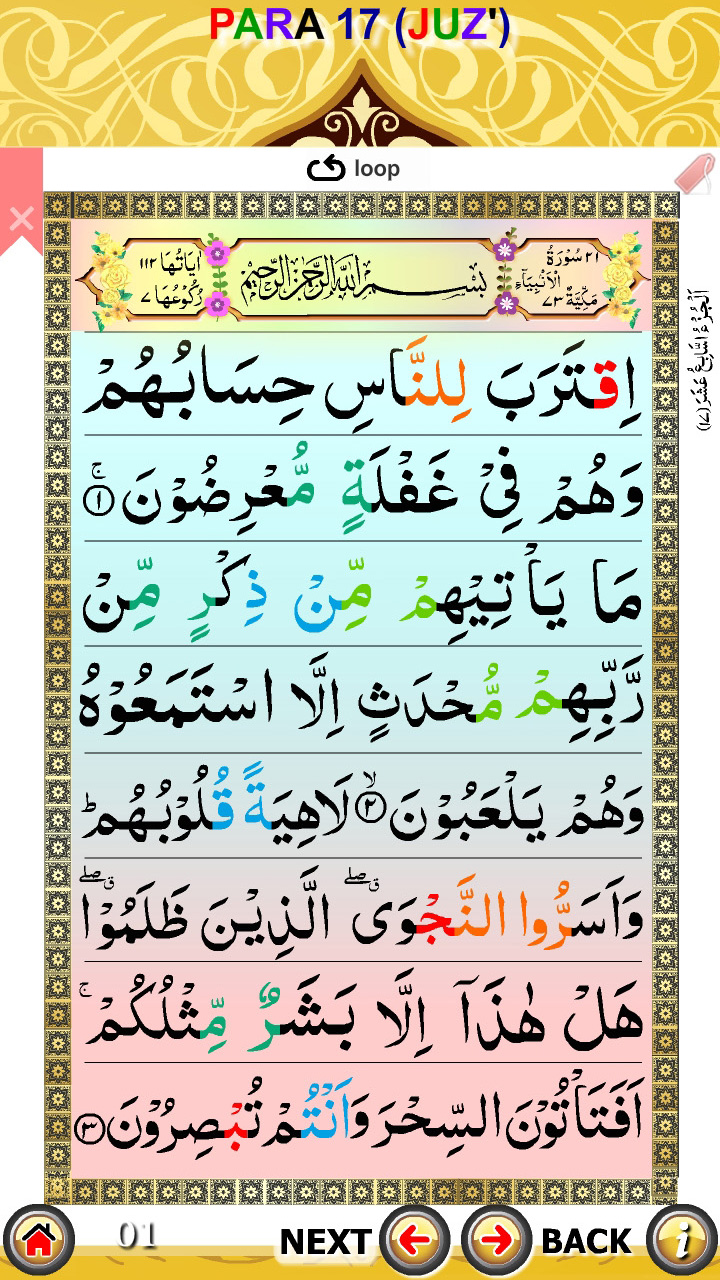 PARA 17 (JUZ')
loop
اٰيَاتُهَا ١١٢
رُكُوْعُهَا ٧
بِسْمِ اللّٰهِ الرَّحْمٰنِ الرَّحِيْمِ
٢١ سُوْرَةُ
الْاَنْبِيَآءِ
مَكِّيَّةٌ ٧٣
اَلْجُزْءُ السَّابِعُ عَشَرَ (١٧)
اِقْتَرَبَ لِلنَّاسِ حِسَابُهُمْ
وَهُمْ فِيْ غَفْلَةٍ مُّعْرِضُوْنَ ۚ ١
مَا يَاْتِيْهِمْ مِّنْ ذِكْرٍ مِّنْ
رَّبِّهِمْ مُّحْدَثٍ اِلَّا اسْتَمَعُوْهُ
وَهُمْ يَلْعَبُوْنَ ۙ ٢ لَاهِيَةً قُلُوْبُهُمْ ؕ
وَاَسَرُّوا النَّجْوَى ۖق الَّذِيْنَ ظَلَمُوْا ۖق
هَلْ هٰذَآ اِلَّا بَشَرٌ مِّثْلُكُمْ ۚ
اَفَتَاْتُوْنَ السِّحْرَ وَاَنْتُمْ تُبْصِرُوْنَ ٣
01
NEXT
BACK
i